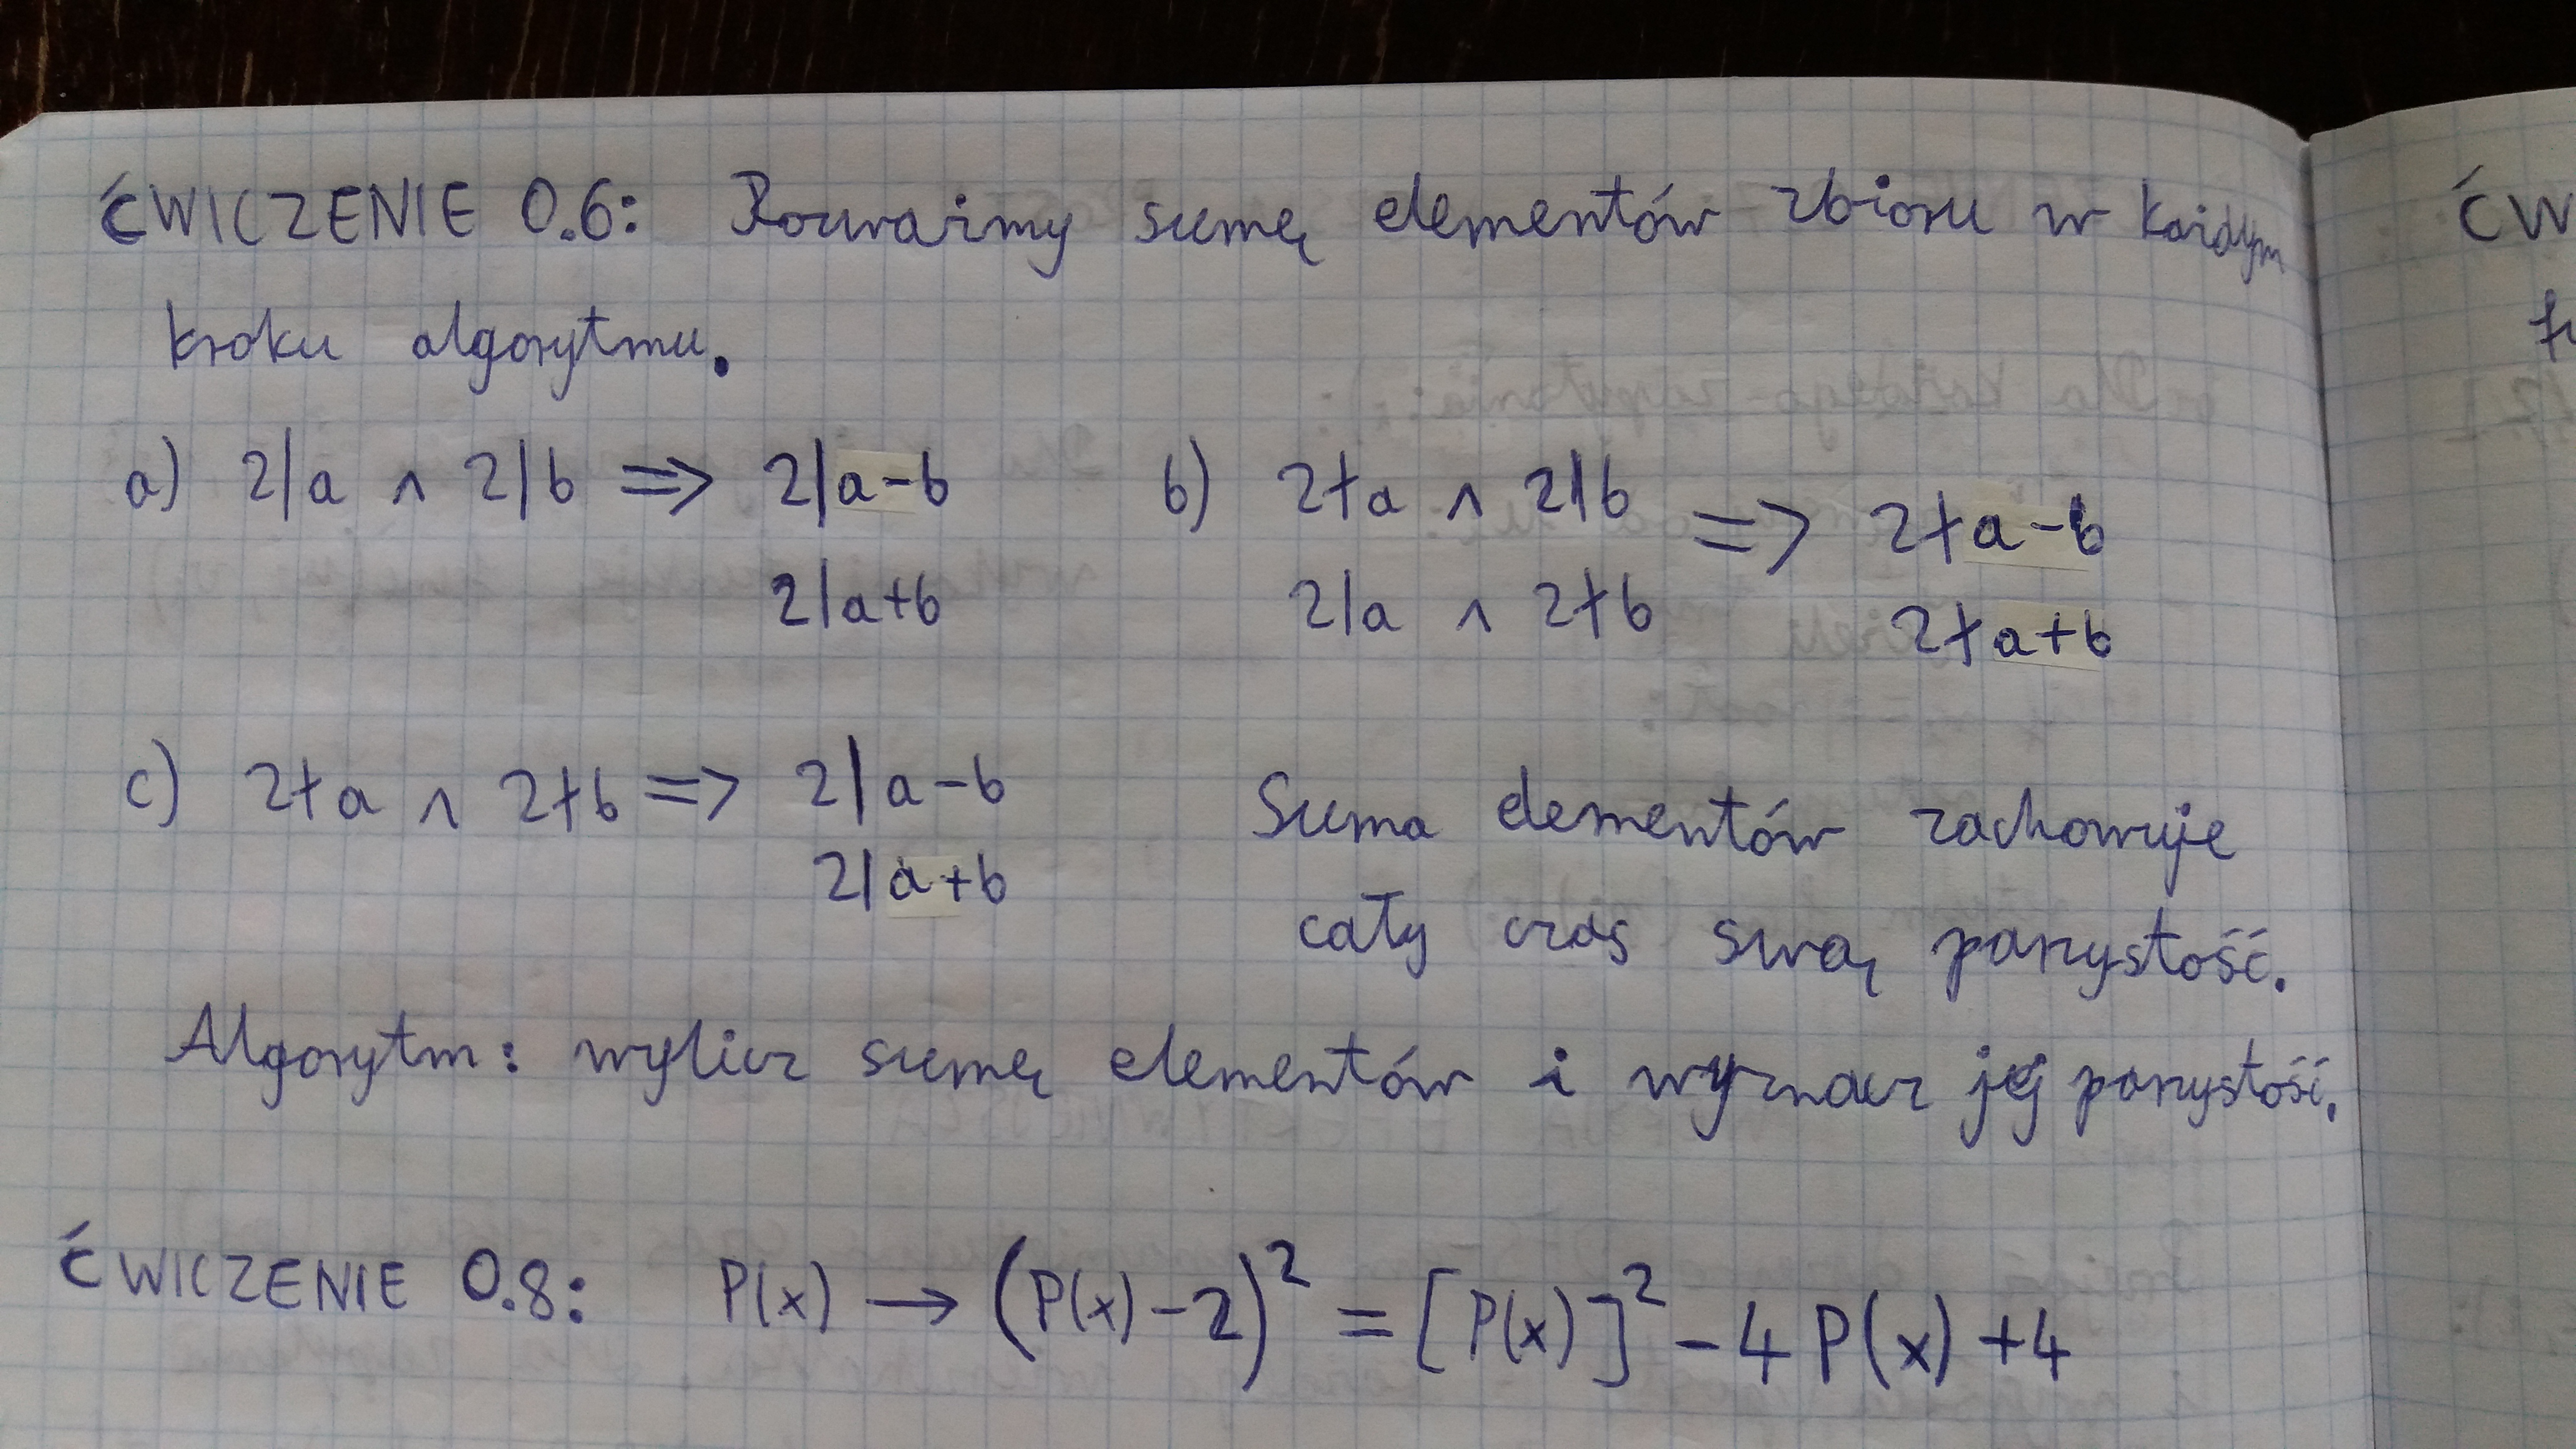 ĆWICZENIE 0.6: Rozważmy sumę elementów zbioru w każdym
kroku algorytmu.
a) 2|a ∧ 2|b => 2|a-b
2|a+b
b) 2∤a ∧ 2|b => 2∤a-b
2|a ∧ 2∤b 2∤a+b
c) 2∤a ∧ 2∤b => 2|a-b
2|a+b
Suma elementów zachowuje
cały czas swą parzystość.
Algorytm: wylicz sumę elementów i wyznacz jej parzystość.
ĆWICZENIE 0.8: P(x) → (P(x)-2)² = [P(x)]² - 4P(x) + 4
ĆW